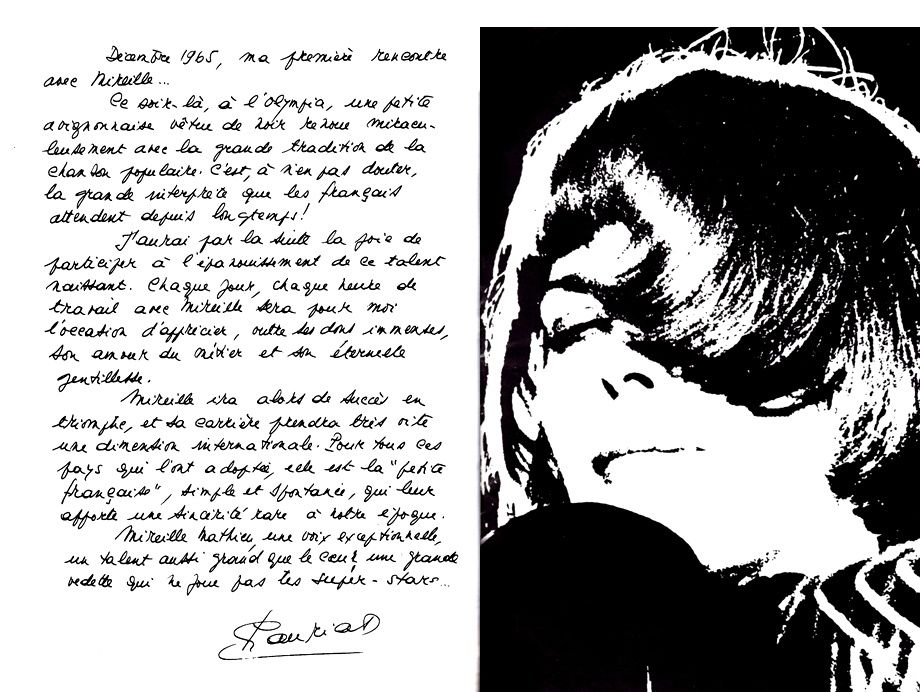 Décembre 1965, ma première rencontre
avec Mireille...
Ce soir-là, à l'Olympia, une petite
avignonnaise vêtue de noir renoue miracu-
leusement avec la grande tradition de la
chanson populaire. C'est, à n'en pas douter,
la grande interprète que les français
attendent depuis longtemps!
J'aurai par la suite la joie de
participer à l'épanouissement de ce talent
naissant. Chaque jour, chaque heure de
travail avec Mireille sera pour moi
l'occasion d'apprécier, outre ses dons immenses,
son amour du métier et son éternelle
gentillesse.
Mireille ira alors de succès en
triomphe, et sa carrière prendra très vite
une dimension internationale. Pour tous ces
pays qui l'ont adoptée, elle est la "petite
française", simple et spontanée, qui leur
apporte une sincérité rare à notre époque.
Mireille Mathieu une voix exceptionnelle,
un talent aussi grand que le cœur une grande
vedette qui ne joue pas les super-stars...
PauriaT